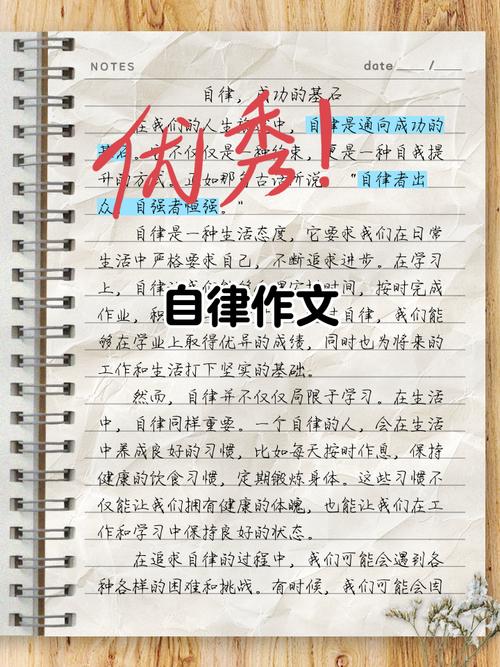 NOTES
date ____ / ____
自律，成功的基石
优秀！
在我们的人生 中，自律是通向成功的
基石。 不仅仅是一种约束， 是一种自我提
升的方式。正如那 古话所说，“自律者出
众， 自强者恒强。”
自律是一种生活态度，它要求我们在日常
生活中严格要求自己，不断追求进步。在学习
上，自律 时间，按时完成
自律作文
作业，积 自律，我们能
够在学业上取得优异的成绩，同时也为将来的
工作和生活打下坚实的基础。
然而，自律并不仅仅局限于学习。在生活
中，自律同样重要。一个自律的人，会在生活
中养成良好的习惯，比如每天按时作息，保持
健康的饮食习惯，定期锻炼身体。这些习惯不
仅能让我们拥有健康的体魄，也能让我们在工
作和学习中保持良好的状态。
在追求自律的过程中，我们可能会遇到各
种各样的困难和挑战。有时候，我们可能会因